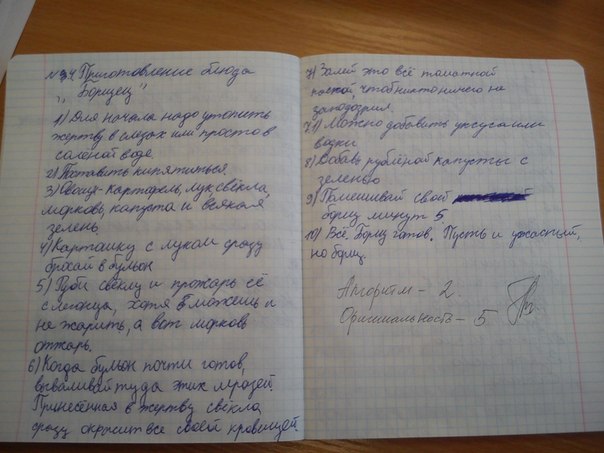 №34 Приготовление блюда
„Борщец"
1) Для начала надо утопить
жертву в слезах или просто в
солёной воде
2) Поставить кипятиться.
3) Овощи-Картофель, лук свёкла,
морковь, капуста и всякая
зелень
4) Картошку с луком сразу
бросай в бульон
5) Руби свёклу и прожарь её
слегонца, хотя можешь и
не жарить, а вот морковь
отжарь.
6) Когда бульон почти готов,
вываливай туда этих мразей.
Принесённая в жертву свёкла
сразу окрасит все своей кровищей.
7) Залей это всё томатной
пастой, чтоб никто ничего не
заподозрил.
7.1) Можно добавить уксуса или
водки
8) Добавь рубленой капусты с
зеленью
9) Помешивай свой
борщ минут 5
10) Всё, Борщ готов. Пусть и ужасный,
но борщ.
Алгоритм - 2.
Оригинальность - 5